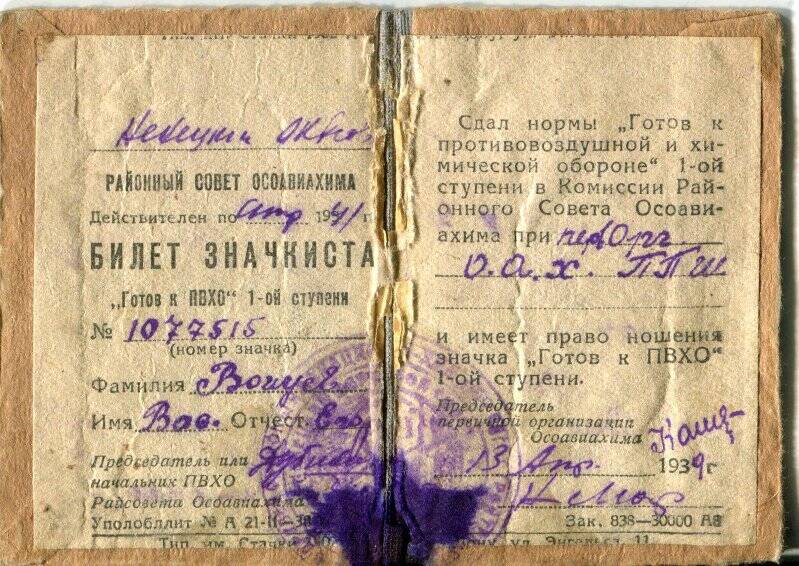 РАЙОННЫЙ СОВЕТ ОСОАВИАХИМА
Действителен по апр 1941 г
БИЛЕТ ЗНАЧКИСТА
„Готов к ПВХО" 1-ой ступени
№ 1077515
(номер значка)
Фамилия
Имя Вас. Отчест
Председатель или
начальник ПВХО
Райсовета Осоавиахима
Уполобллит № А 21-II-38
Тип. им. Стачки
Сдал нормы „Готов к
противовоздушной и хи-
мической обороне" 1-ой
ступени в Комиссии Рай-
онного Совета Осоави-
ахима при первОрг
О.А.Х. ППШ
и имеет право ношения
значка „Готов к ПВХО"
1-ой ступени.
Председатель
первичной организации
Осоавиахима
13 Апр. 1939 г
Зак. 838—30000 АВ
ул. Энгельса 11